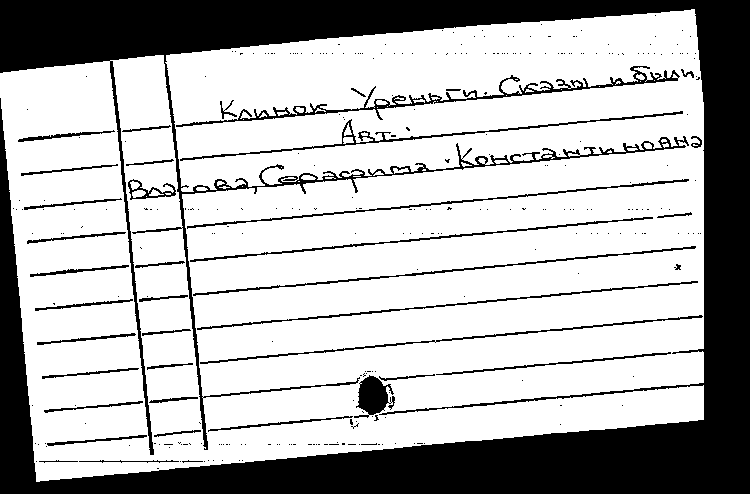 Клинок Уреньги. Сказы и были.
Авт.:
Власова, Серафима Константиновна